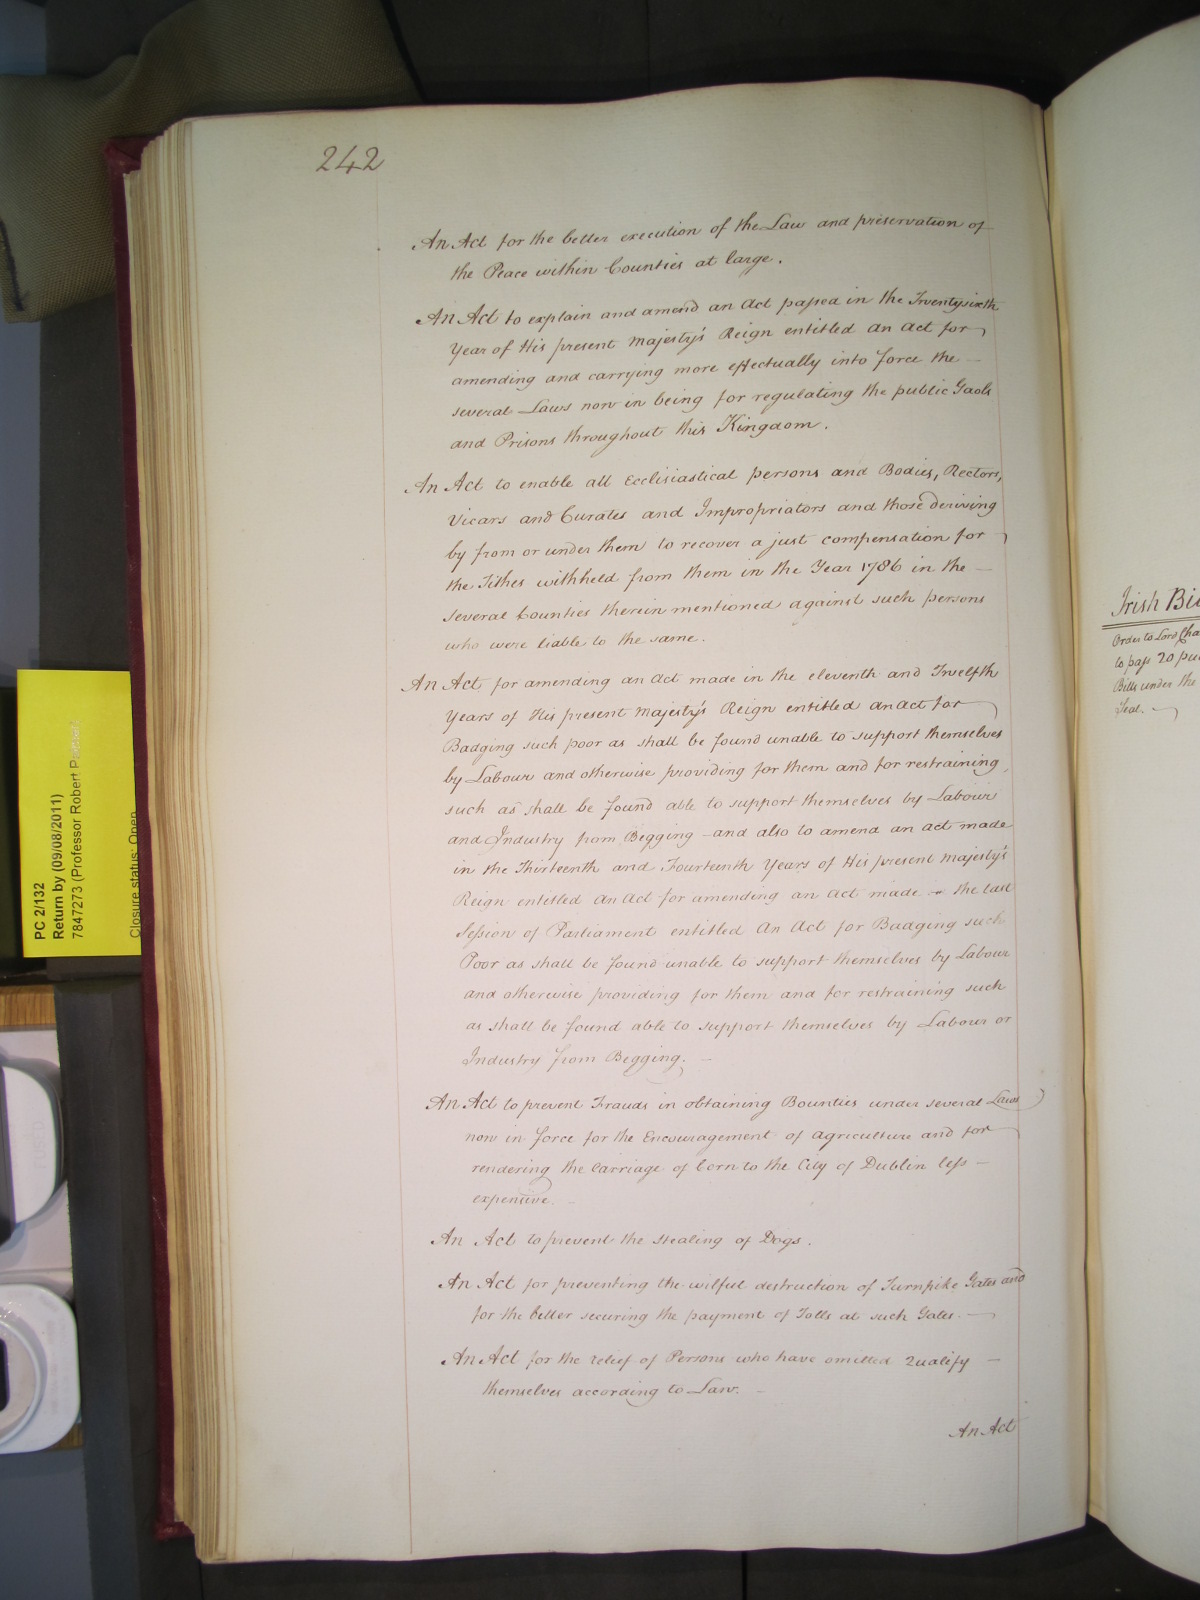 242
An Act for the better execution of the Law and preservation of
the Peace within Counties at large.
An Act to explain and amend an Act passed in the Twentysixth
Year of His present Majesty's Reign entitled an Act for
amending and carrying more effectually into force the
several Laws now in being for regulating the public Gaols
and Prisons throughout this Kingdom.
An Act to enable all Ecclisiastical persons and Bodies, Rectors,
Vicars and Curates and Impropriators and those deriving
by from or under them to recover a just compensation for
the Tithes withheld from them in the Year 1786 in the
several Counties therein mentioned against such persons
who were liable to the same.
An Act for amending an Act made in the eleventh and Twelfth
Years of His present Majesty's Reign entitled an Act for
Badging such poor as shall be found unable to support themselves
by Labour and otherwise providing for them and for restraining
such as shall be found able to support themselves by Labour
and Industry from Begging and also to amend an Act made
in the Thirteenth and Fourteenth Years of His present Majesty's
Reign entitled an Act for amending an Act made in the last
Session of Parliament entitled An Act for Badging such
Poor as shall be found unable to support themselves by Labour
and otherwise providing for them and for restraining such
as shall be found able to support themselves by Labour or
Industry from Begging.
An Act to prevent Frauds in obtaining Bounties under several Laws
now in force for the Encouragement of Agriculture and for
rendering the Carriage of Corn to the City of Dublin less
expensive.
An Act to prevent the stealing of Dogs.
An Act for preventing the wilful destruction of Turnpike Gates and
for the better securing the payment of Tolls at such Gates.
An Act for the relief of Persons who have omitted Qualify
themselves according to Law.
An Act
Irish Bi
Order to Lord Cha
to pass 20 pu
Bills under the
Seal.
PC 2/132
Return by (09/08/2011)
7847273 (Professor Robert
Closure status: Open